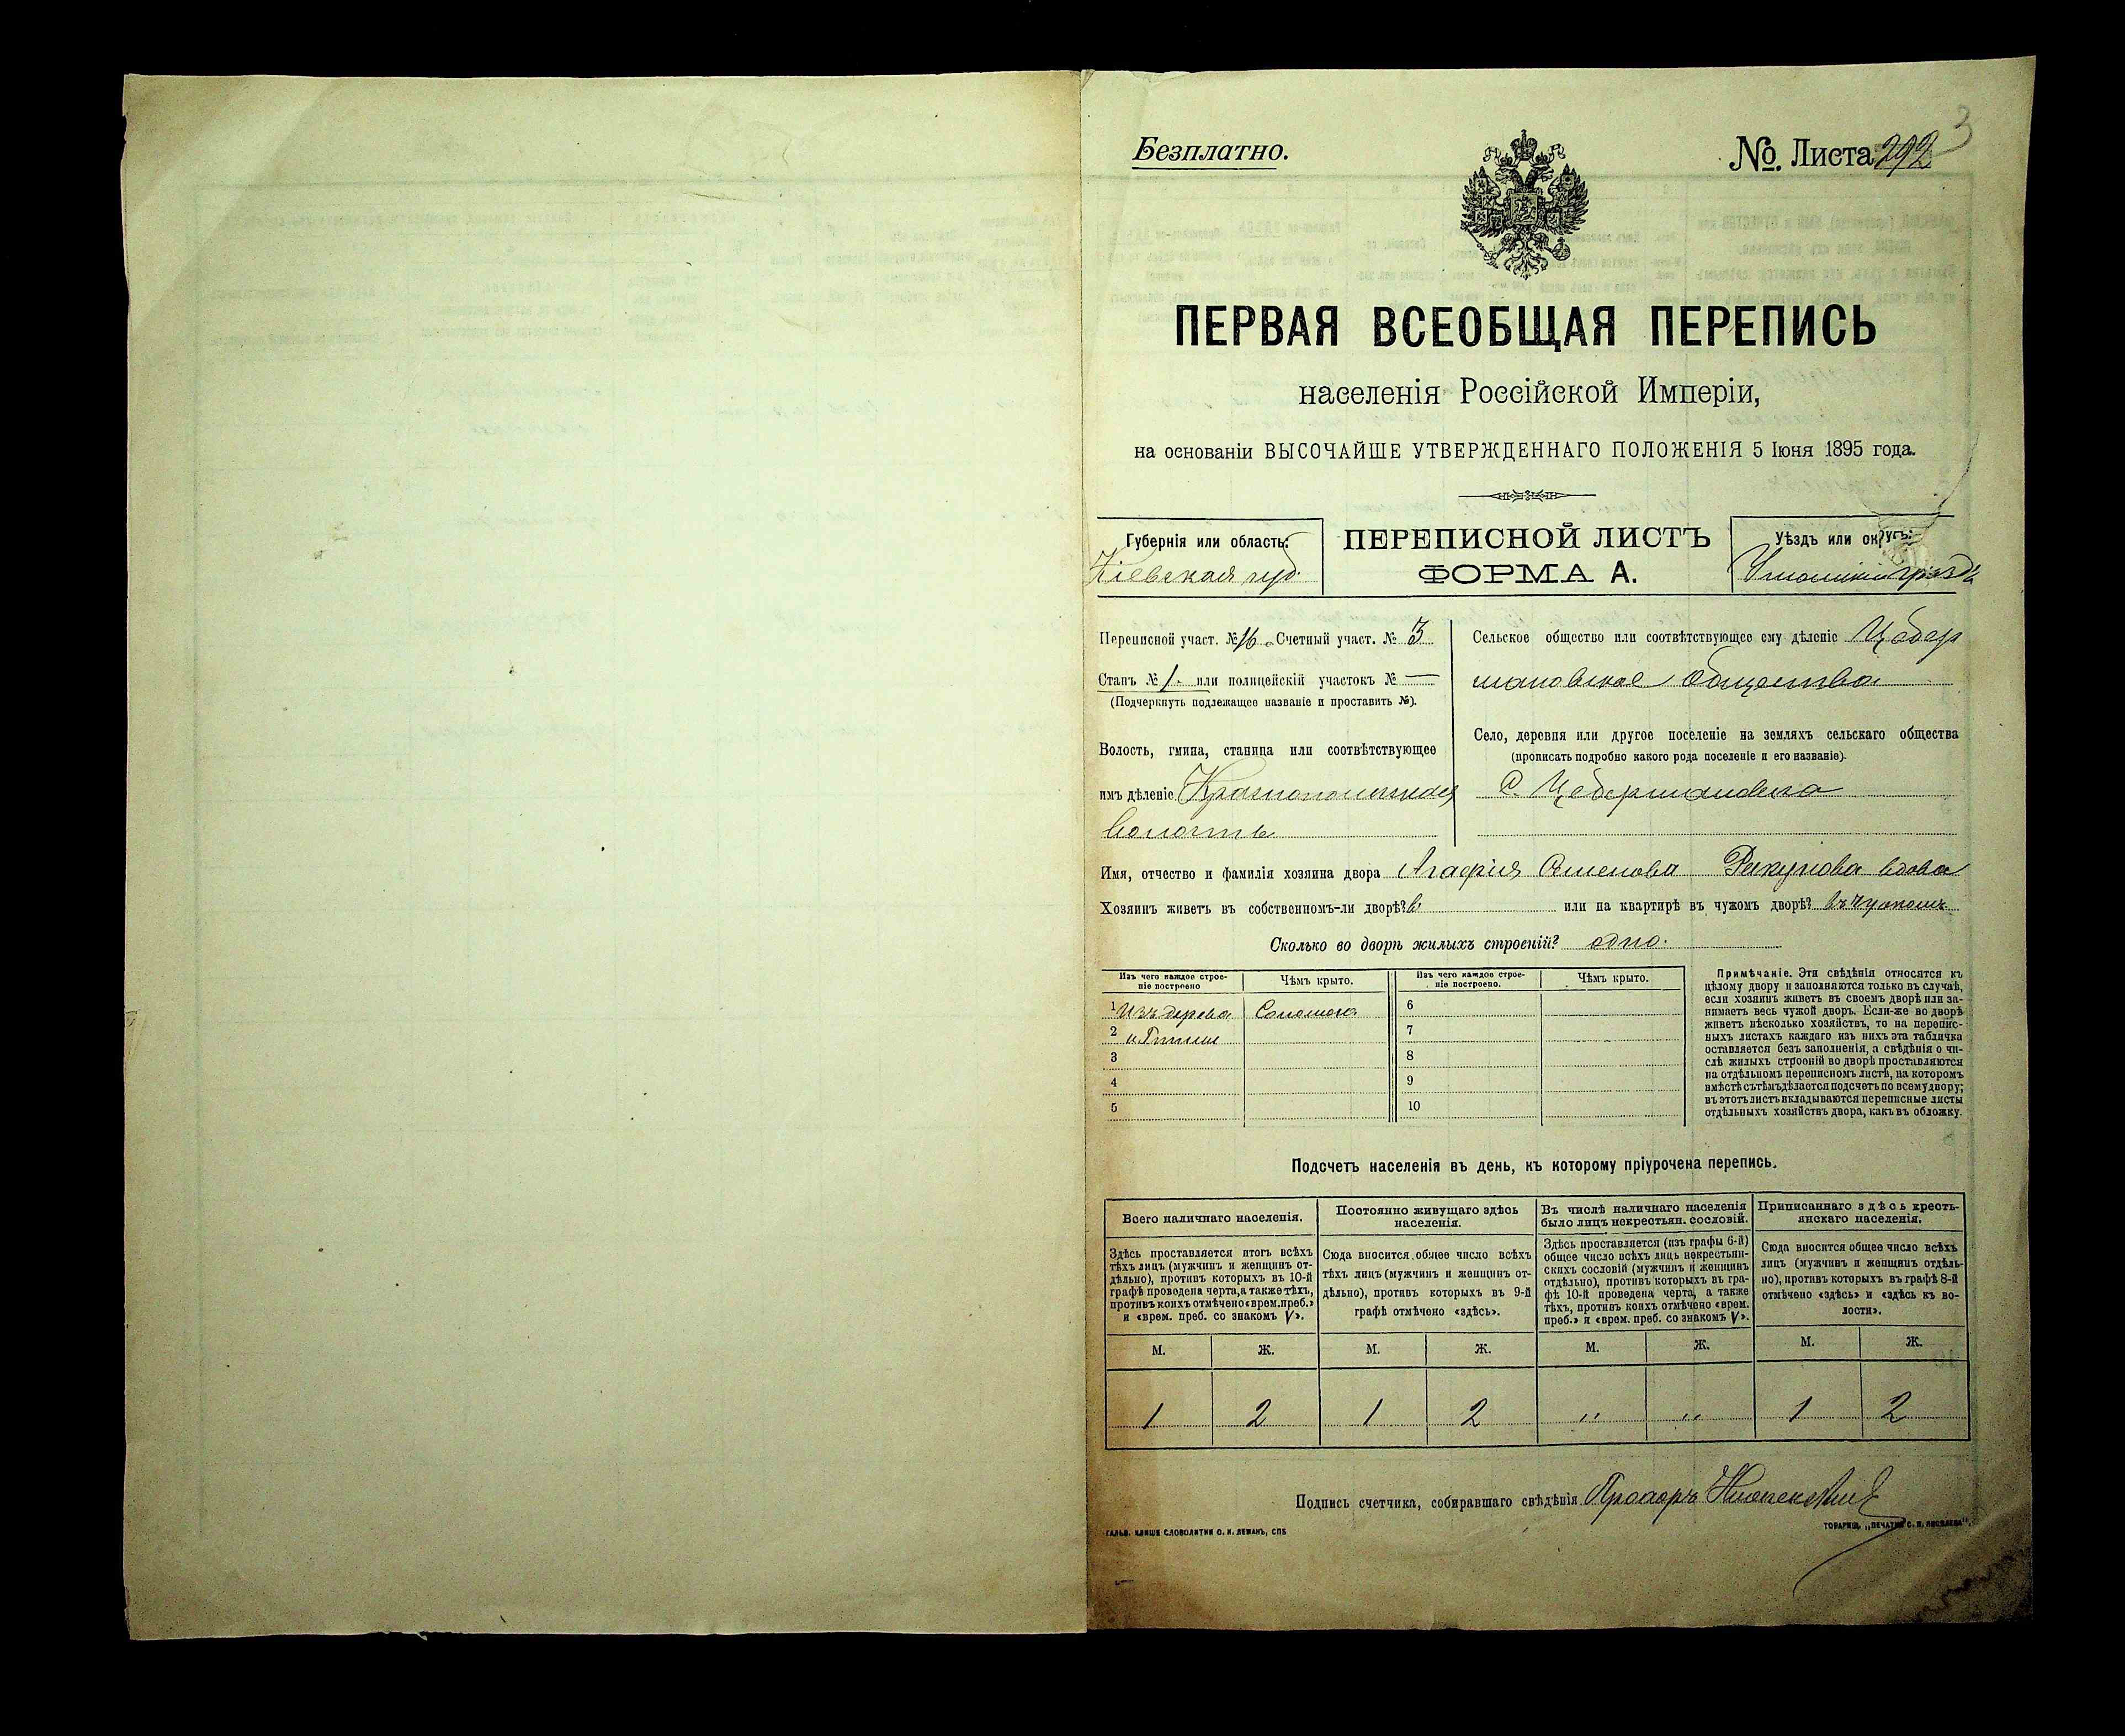 Безплатно.
№. Листа 292
3
ПЕРВАЯ ВСЕОБЩАЯ ПЕРЕПИСЬ
населенія Россійской Имперіи,
на основаніи ВЫСОЧАЙШЕ УТВЕРЖДЕННАГО ПОЛОЖЕНІЯ 5 Іюня 1895 года.
Губернія или область:
Кіевская губ.
ПЕРЕПИСНОЙ ЛИСТЪ
ФОРМА А.
Уѣздъ или округъ:
Уманскій уѣздъ
Переписной участ. № 16. Счетный участ. № 3
Станъ № 1. или полицейскій участокъ № —
(Подчеркнуть подлежащее названіе и проставить №).
Волость, гмина, станица или соотвѣтствующее
имъ дѣленіе Краснопольская
волость
Сельское общество или соотвѣтствующее ему дѣленіе Цебер
мановское общество
Село, деревня или другое поселеніе на земляхъ сельскаго общества
(прописать подробно какого рода поселеніе и его названіе).
С. Цебермановка
Имя, отчество и фамилія хозяина двора Агафія Семенова вдова
Хозяинъ живетъ въ собственномъ-ли дворѣ? или на квартирѣ въ чужомъ дворѣ? въ чужомъ
Сколько во дворѣ жилыхъ строеній? одно.
Изъ чего каждое строе-
ніе построено
Чѣмъ крыто.
Изъ чего каждое строе-
ніе построено.
Чѣмъ крыто.
1 Изъ дерева Соломою 6
2 и Глины 7
3 8
4 9
5 10
Примѣчаніе. Эти свѣдѣнія относятся къ
цѣлому двору и заполняются только въ случаѣ,
если хозяинъ живетъ въ своемъ дворѣ или за-
нимаетъ весь чужой дворъ. Если-же во дворѣ
живетъ нѣсколько хозяйствъ, то на перепис-
ныхъ листахъ каждаго изъ нихъ эта табличка
оставляется безъ заполненія, а свѣдѣнія о чи-
слѣ жилыхъ строеній во дворѣ проставляются
на отдѣльномъ переписномъ листѣ, на которомъ
вмѣстѣ съ тѣмъ дѣлается подсчетъ по всему двору;
въ этотъ листъ вкладываются переписные листы
отдѣльныхъ хозяйствъ двора, какъ въ обложку.
Подсчетъ населенія въ день, къ которому пріурочена перепись.
Всего наличнаго населенія.
Здѣсь проставляется итогъ всѣхъ
тѣхъ лицъ (мужчинъ и женщинъ от-
дѣльно), противъ которыхъ въ 10-й
графѣ проведена черта, а также тѣхъ,
противъ коихъ отмѣчено «врем. преб.»
и «врем. преб. со знакомъ V».
Постоянно живущаго здѣсь
населенія.
Сюда вносится общее число всѣхъ
тѣхъ лицъ (мужчинъ и женщинъ от-
дѣльно), противъ которыхъ въ 9-й
графѣ отмѣчено «здѣсь».
Въ числѣ наличнаго населенія
было лицъ некрестьян. сословій.
Здѣсь проставляется (изъ графы 6-й)
общее число всѣхъ лицъ некрестьян-
скихъ сословій (мужчинъ и женщинъ
отдѣльно), противъ которыхъ въ гра-
фѣ 10-й проведена черта, а также
тѣхъ, противъ коихъ отмѣчено «врем.
преб.» и «врем. преб. со знакомъ V».
Приписаннаго здѣсь кресть-
янскаго населенія.
Сюда вносится общее число всѣхъ
лицъ (мужчинъ и женщинъ отдѣль-
но), противъ которыхъ въ графѣ 8-й
отмѣчено «здѣсь» и «здѣсь къ во-
лости».
М. Ж. М. Ж. М. Ж. М. Ж.
1 2 1 2 " " 1 2
Подпись счетчика, собиравшаго свѣдѣнія Прохоръ
ГАЛЬВ. КЛИШЕ СЛОВОЛИТНИ О. И. ЛЕМАНЪ, СПБ
ТОВАРИЩ. „ПЕЧАТНЯ С. П. ЯКОВЛЕВА".